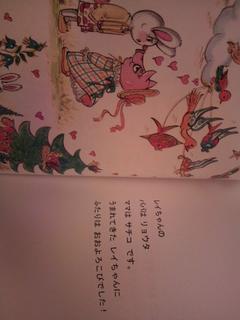 レイちゃんの
パパは リョウタ
ママは サチコ です。
うまれてきた レイちゃんに
ふたりは おおよろこびでした!